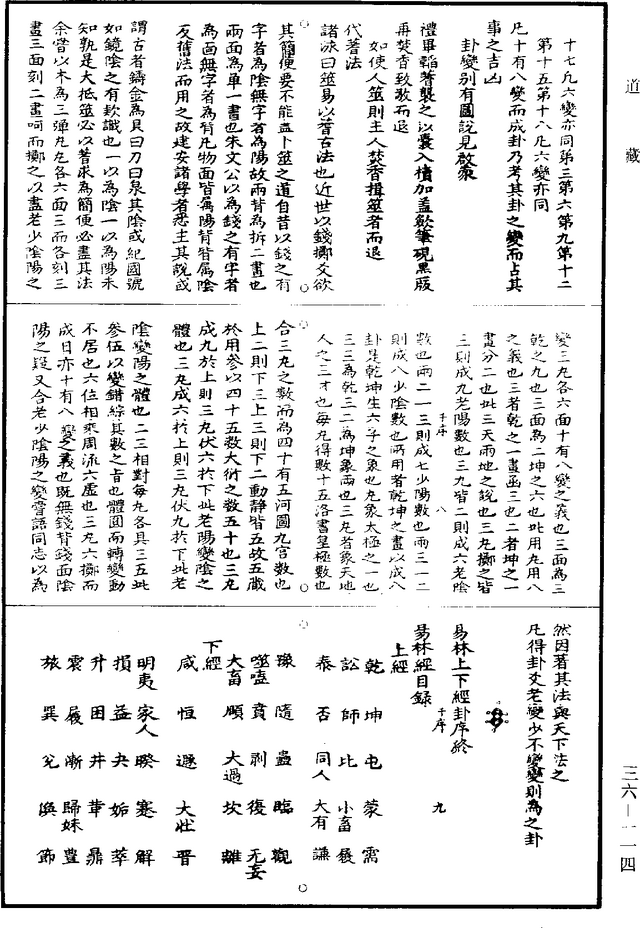 道藏
十七九六變亦同第三第六第九第十二
第十五第十八凡六變亦同
凡十有八變而成卦乃考其卦之變而占其
事之吉凶
卦變别有圖說見啟蒙
禮畢韜蓍襲之以囊入櫝加盖歛筆硯黑版
再焚香致敬而退
如使人筮則主人焚香揖筮者而退
代蓍法
諸泳曰筮易以蓍古法也近世以錢擲爻欲
其簡便要不能盡卜筮之道自昔以錢之有
字者為陰無字者為陽故兩背為拆二畫也
兩面為單一畫也朱文公以為錢之有字者
為面無字者為背凡物面皆屬陽背皆屬陰
反舊法而用之故建安諸學者悉主其說或
謂古者鑄金為貝曰刀曰泉其陰或紀國號
如鏡陰之有欵識也一以為陰一以為陽未
知孰是大抵筮必以蓍求為簡便必盡其法
余嘗以木為三彈丸丸各六面三而各刻三
畫三面刻二畫呵而擲之以盡老少陰陽之
變三丸各六面十有八變之義也三面為三
乾之九也三面為二坤之六也此用九用八
之義也三者乾之一畫函三也二者坤之一
畫分二也此三天兩地之說也三丸擲之皆
三則成九老陽數也三丸皆二則成六老陰
于序 八
數也兩二一三則成七少陽數也兩三一二
則成八少陰數也所用者乾坤之畫以成八
卦是乾坤生六子之象也丸象太極之一也
三三為乾三二為坤象兩也三丸者象天地
人之三才也每丸得數十五洛書皇極數也
合三丸之數而為四十有五河圖九宮數也
上二則下三上三則下二動静皆五故五藏
於用參以四十五數大衍之數五十也三丸
成九於上則三丸伏六於下此老陽變陰之
體也三丸成六於上則三丸伏九於下此老
陰變陽之體也二三相對每丸各具三五此
參伍以變錯綜其數之旨也體圓而轉變動
不居也六位相乘周流六虛也三丸六擲而
成日亦十有八變之義也既無錢背錢面陰
陽之疑又合老少陰陽之變嘗語同志以為
然因著其法與天下法之
凡得卦爻老變少不變變則為之卦
易林上下經卦序終
于序 九
易林經目録
上經
乾 坤 屯 蒙 需
訟 師 比 小畜 履
泰 否 同人 大有 謙
豫 隨 蠱 臨 觀
噬嗑 賁 剥 復 无妄
大畜 頤 大過 坎 離
下經
咸 恒 遯 大壯 晉
明夷 家人 睽 蹇 解
損 益 夬 姤 萃
升 困 井 革 鼎
震 艮 漸 歸妹 豊
旅 巽 兊 渙 節
三六—一一四